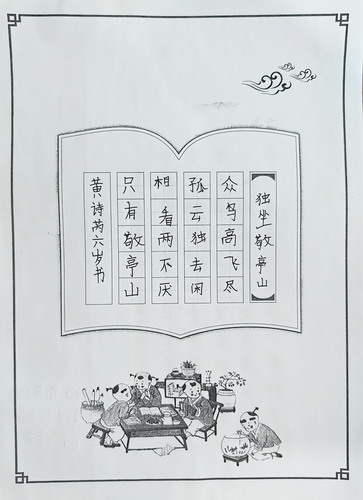 独坐敬亭山
众鸟高飞尽
孤云独去闲
相看两不厌
只有敬亭山
黄诗芮六岁书